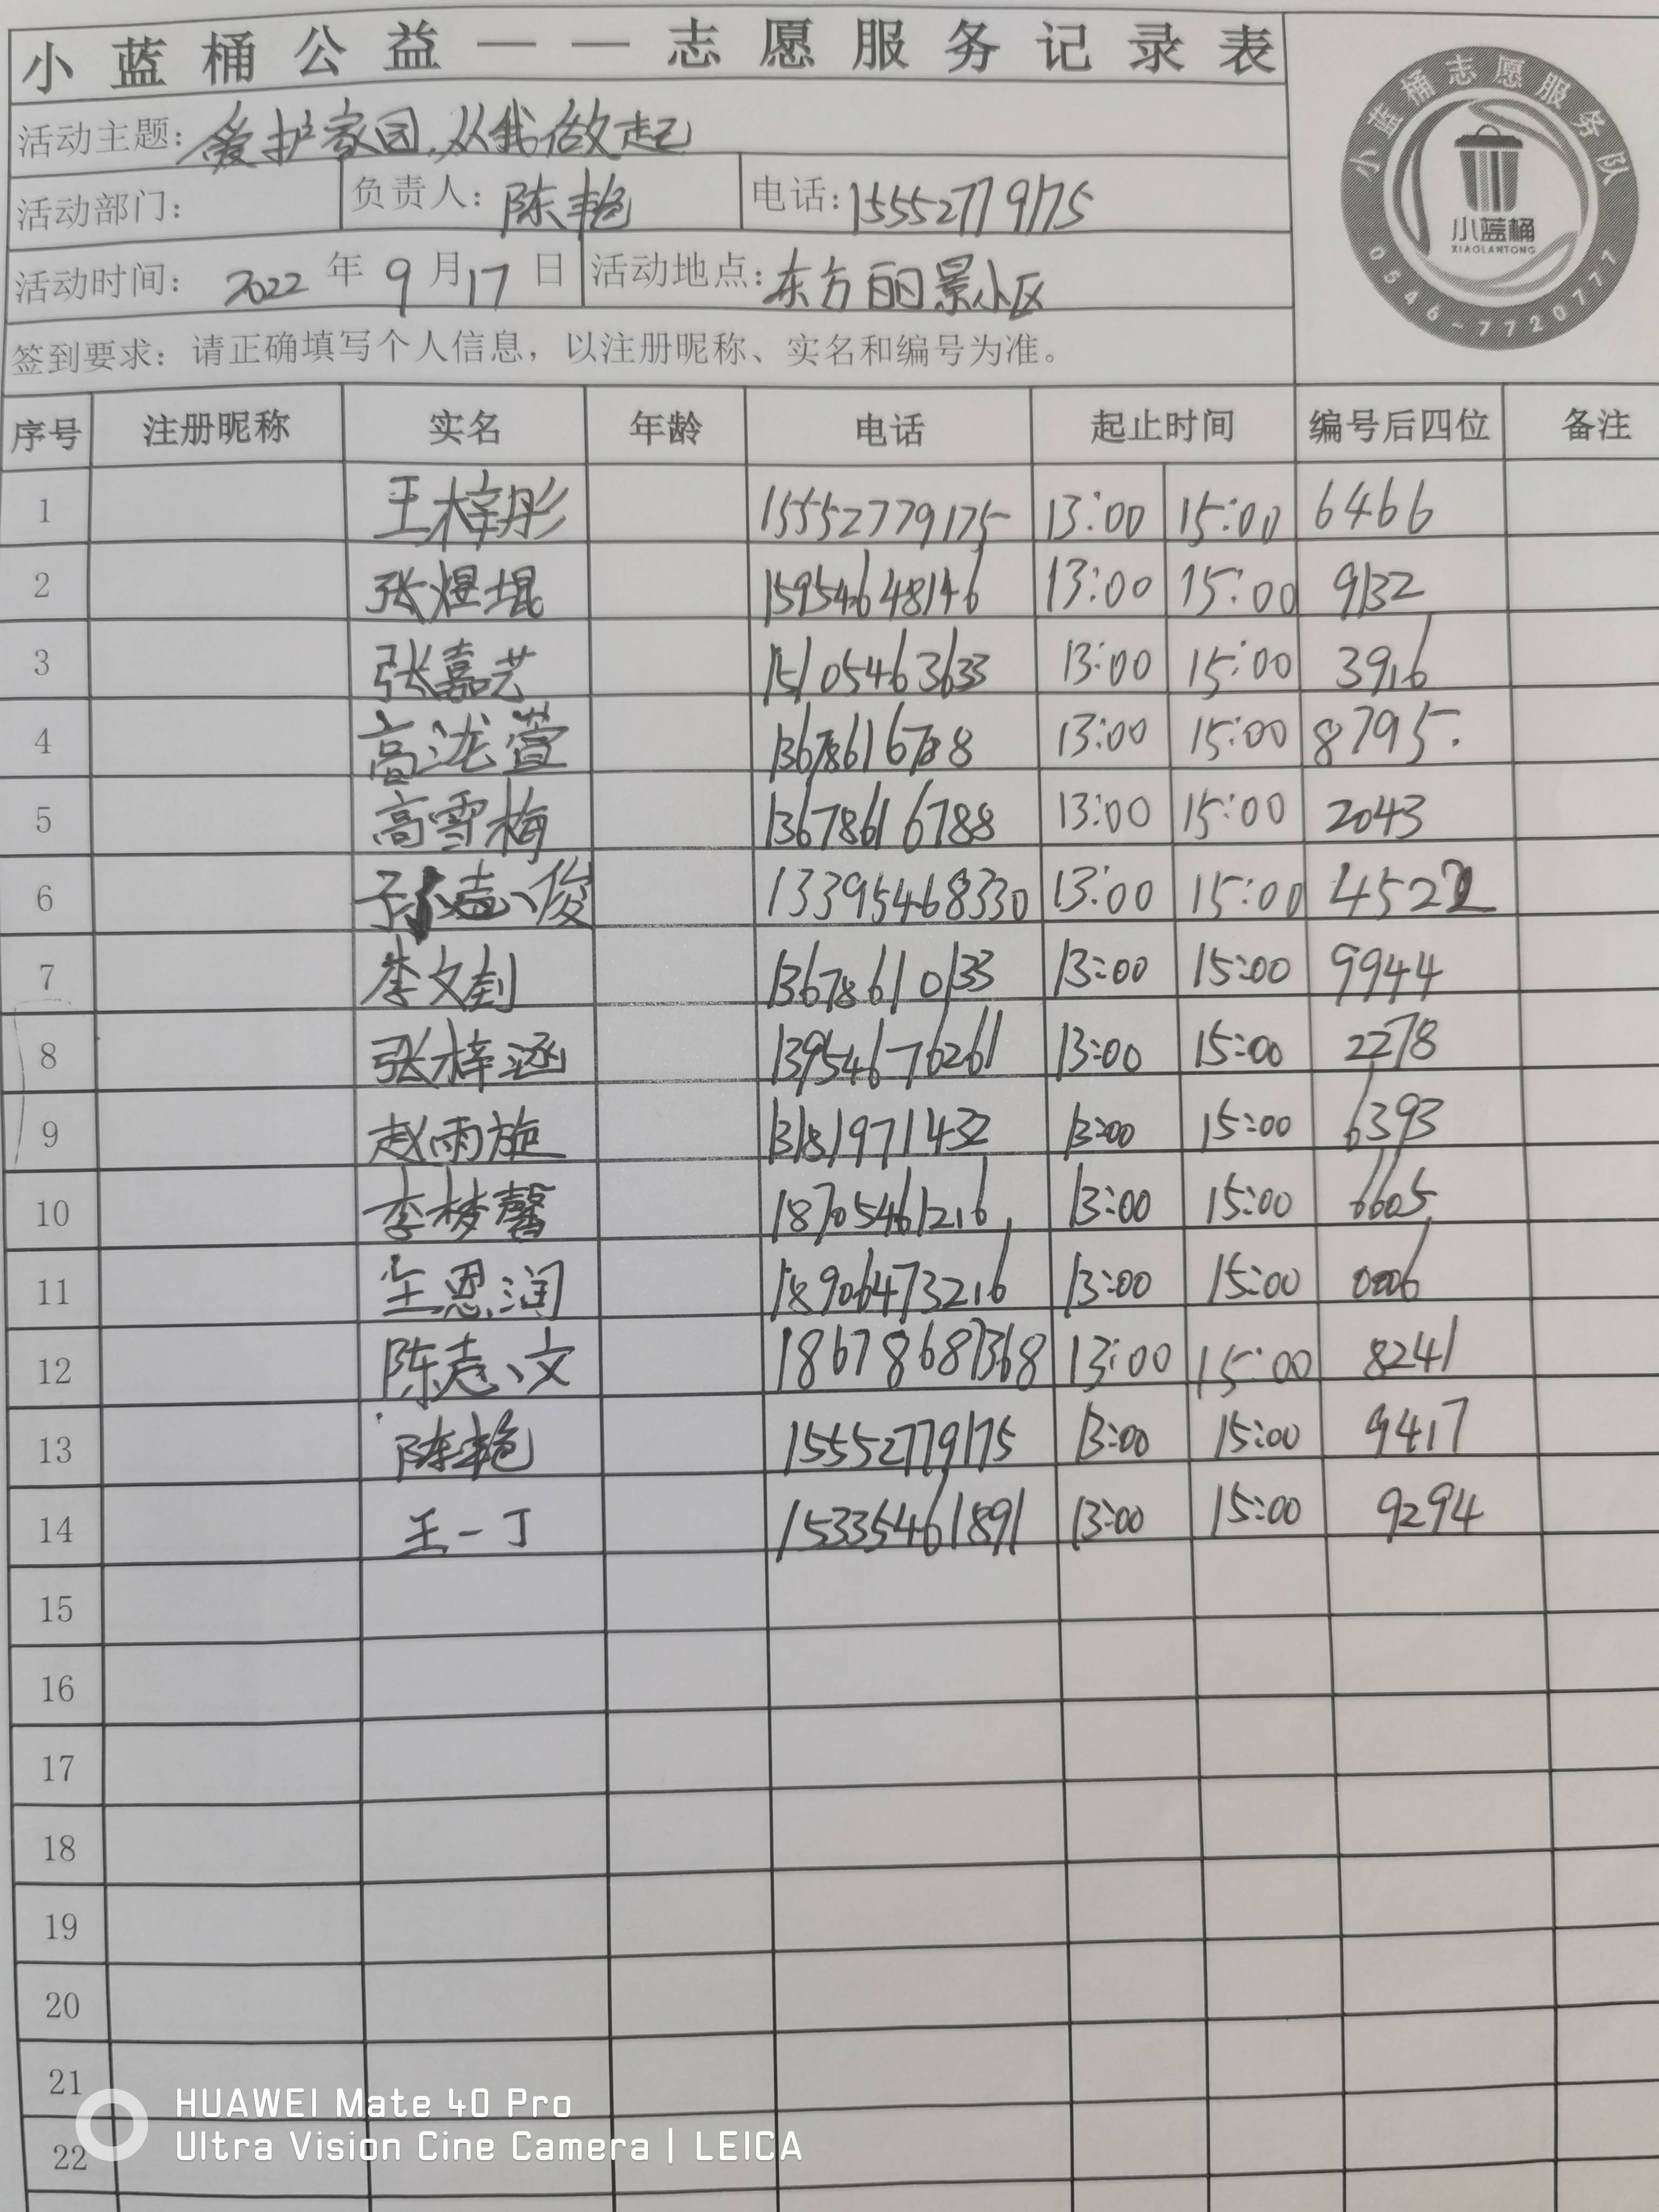 小蓝桶公益——志愿服务记录表
小蓝桶志愿服务队
小蓝桶
XIAOLANTONG
0546-7720777
活动主题: 爱护家园,从我做起
活动部门: 负责人: 陈艳 电话: 15552779175
活动时间: 2022 年 9 月 17 日 活动地点: 东方丽景小区
签到要求: 请正确填写个人信息, 以注册昵称、实名和编号为准。
序号 注册昵称 实名 年龄 电话 起止时间 编号后四位 备注
1 王梓彤 15552779175 13:00 15:00 6466
2 张煜堒 15954648146 13:00 15:00 9132
3 张嘉艺 15105463633 13:00 15:00 3916
4 高泷萱 13678616788 13:00 15:00 8795.
5 高雪梅 13678616788 13:00 15:00 2043
6 孙志俊 13395468330 13:00 15:00 4522
7 李文钊 13678610133 13:00 15:00 9944
8 张梓涵 13954676261 13:00 15:00 2278
9 赵雨旋 13181971432 13:00 15:00 6393
10 李梦馨 18705461216 13:00 15:00 6605
11 王恩润 18906473216 13:00 15:00 0006
12 陈志文 18678687368 13:00 15:00 8241
13 陈艳 15552779175 13:00 15:00 9417
14 王一丁 15335461891 13:00 15:00 9294
15
16
17
18
19
20
21
22
HUAWEI Mate 40 Pro
Ultra Vision Cine Camera | LEICA